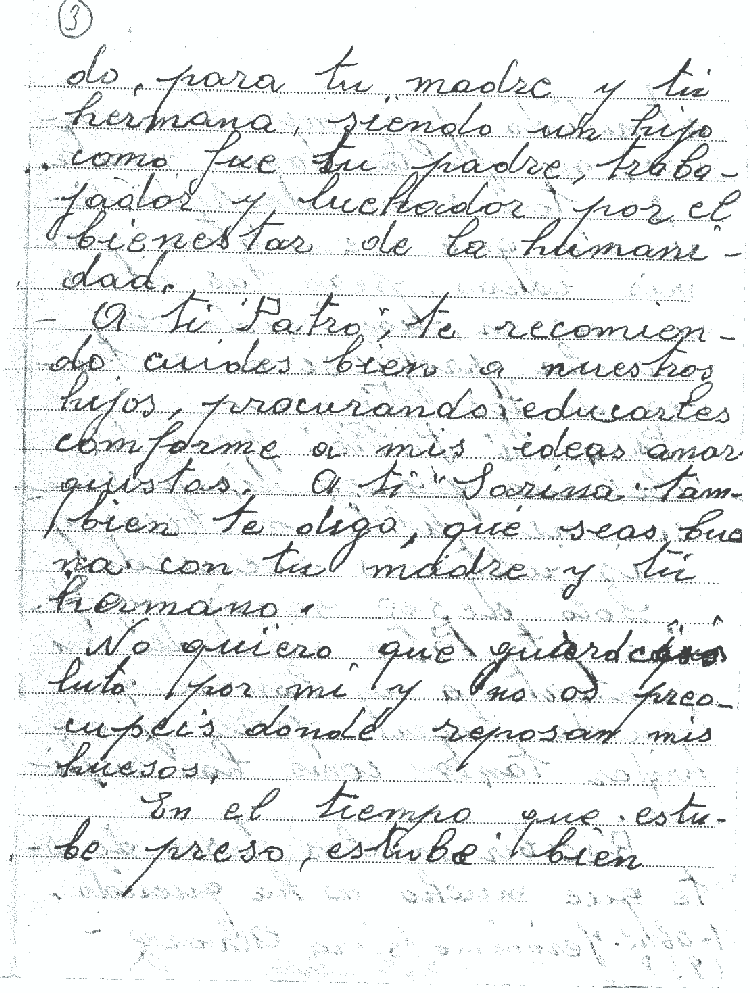 3
do, para tu madre y tú
hermana, siendo un hijo
como fue tu padre, traba-
jador y luchador por el
bienestar de la humani-
dad.
- A ti "Patro", te recomien-
do cuides bien a nuestros
hijos, procurando educarles
comforme a mis ideas anar
quistas. A ti "Sarina" tam-
bien te digo, que seas bue
na con tu madre y tú
hermano.
No quiero que
luto por mi y no os preo-
cupeis donde reposan mis
huesos.
En el tiempo que estu-
be preso, estube bien